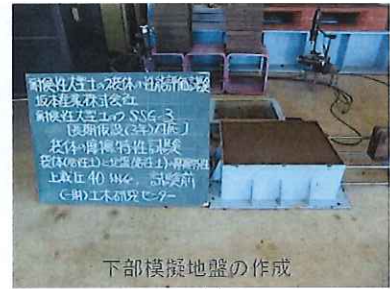 耐候性大型土のう袋体の性能評価試験
坂本産業株式会社
耐候性大型土のう SSG-3
[長期仮設(3年)対応]
袋体の摩擦特性試験
袋体(砂質土)と地盤(砂質土)の摩擦特性
上載圧 40 kN/㎡ 試験前
(一財)土木研究センター
下部模擬地盤の作成